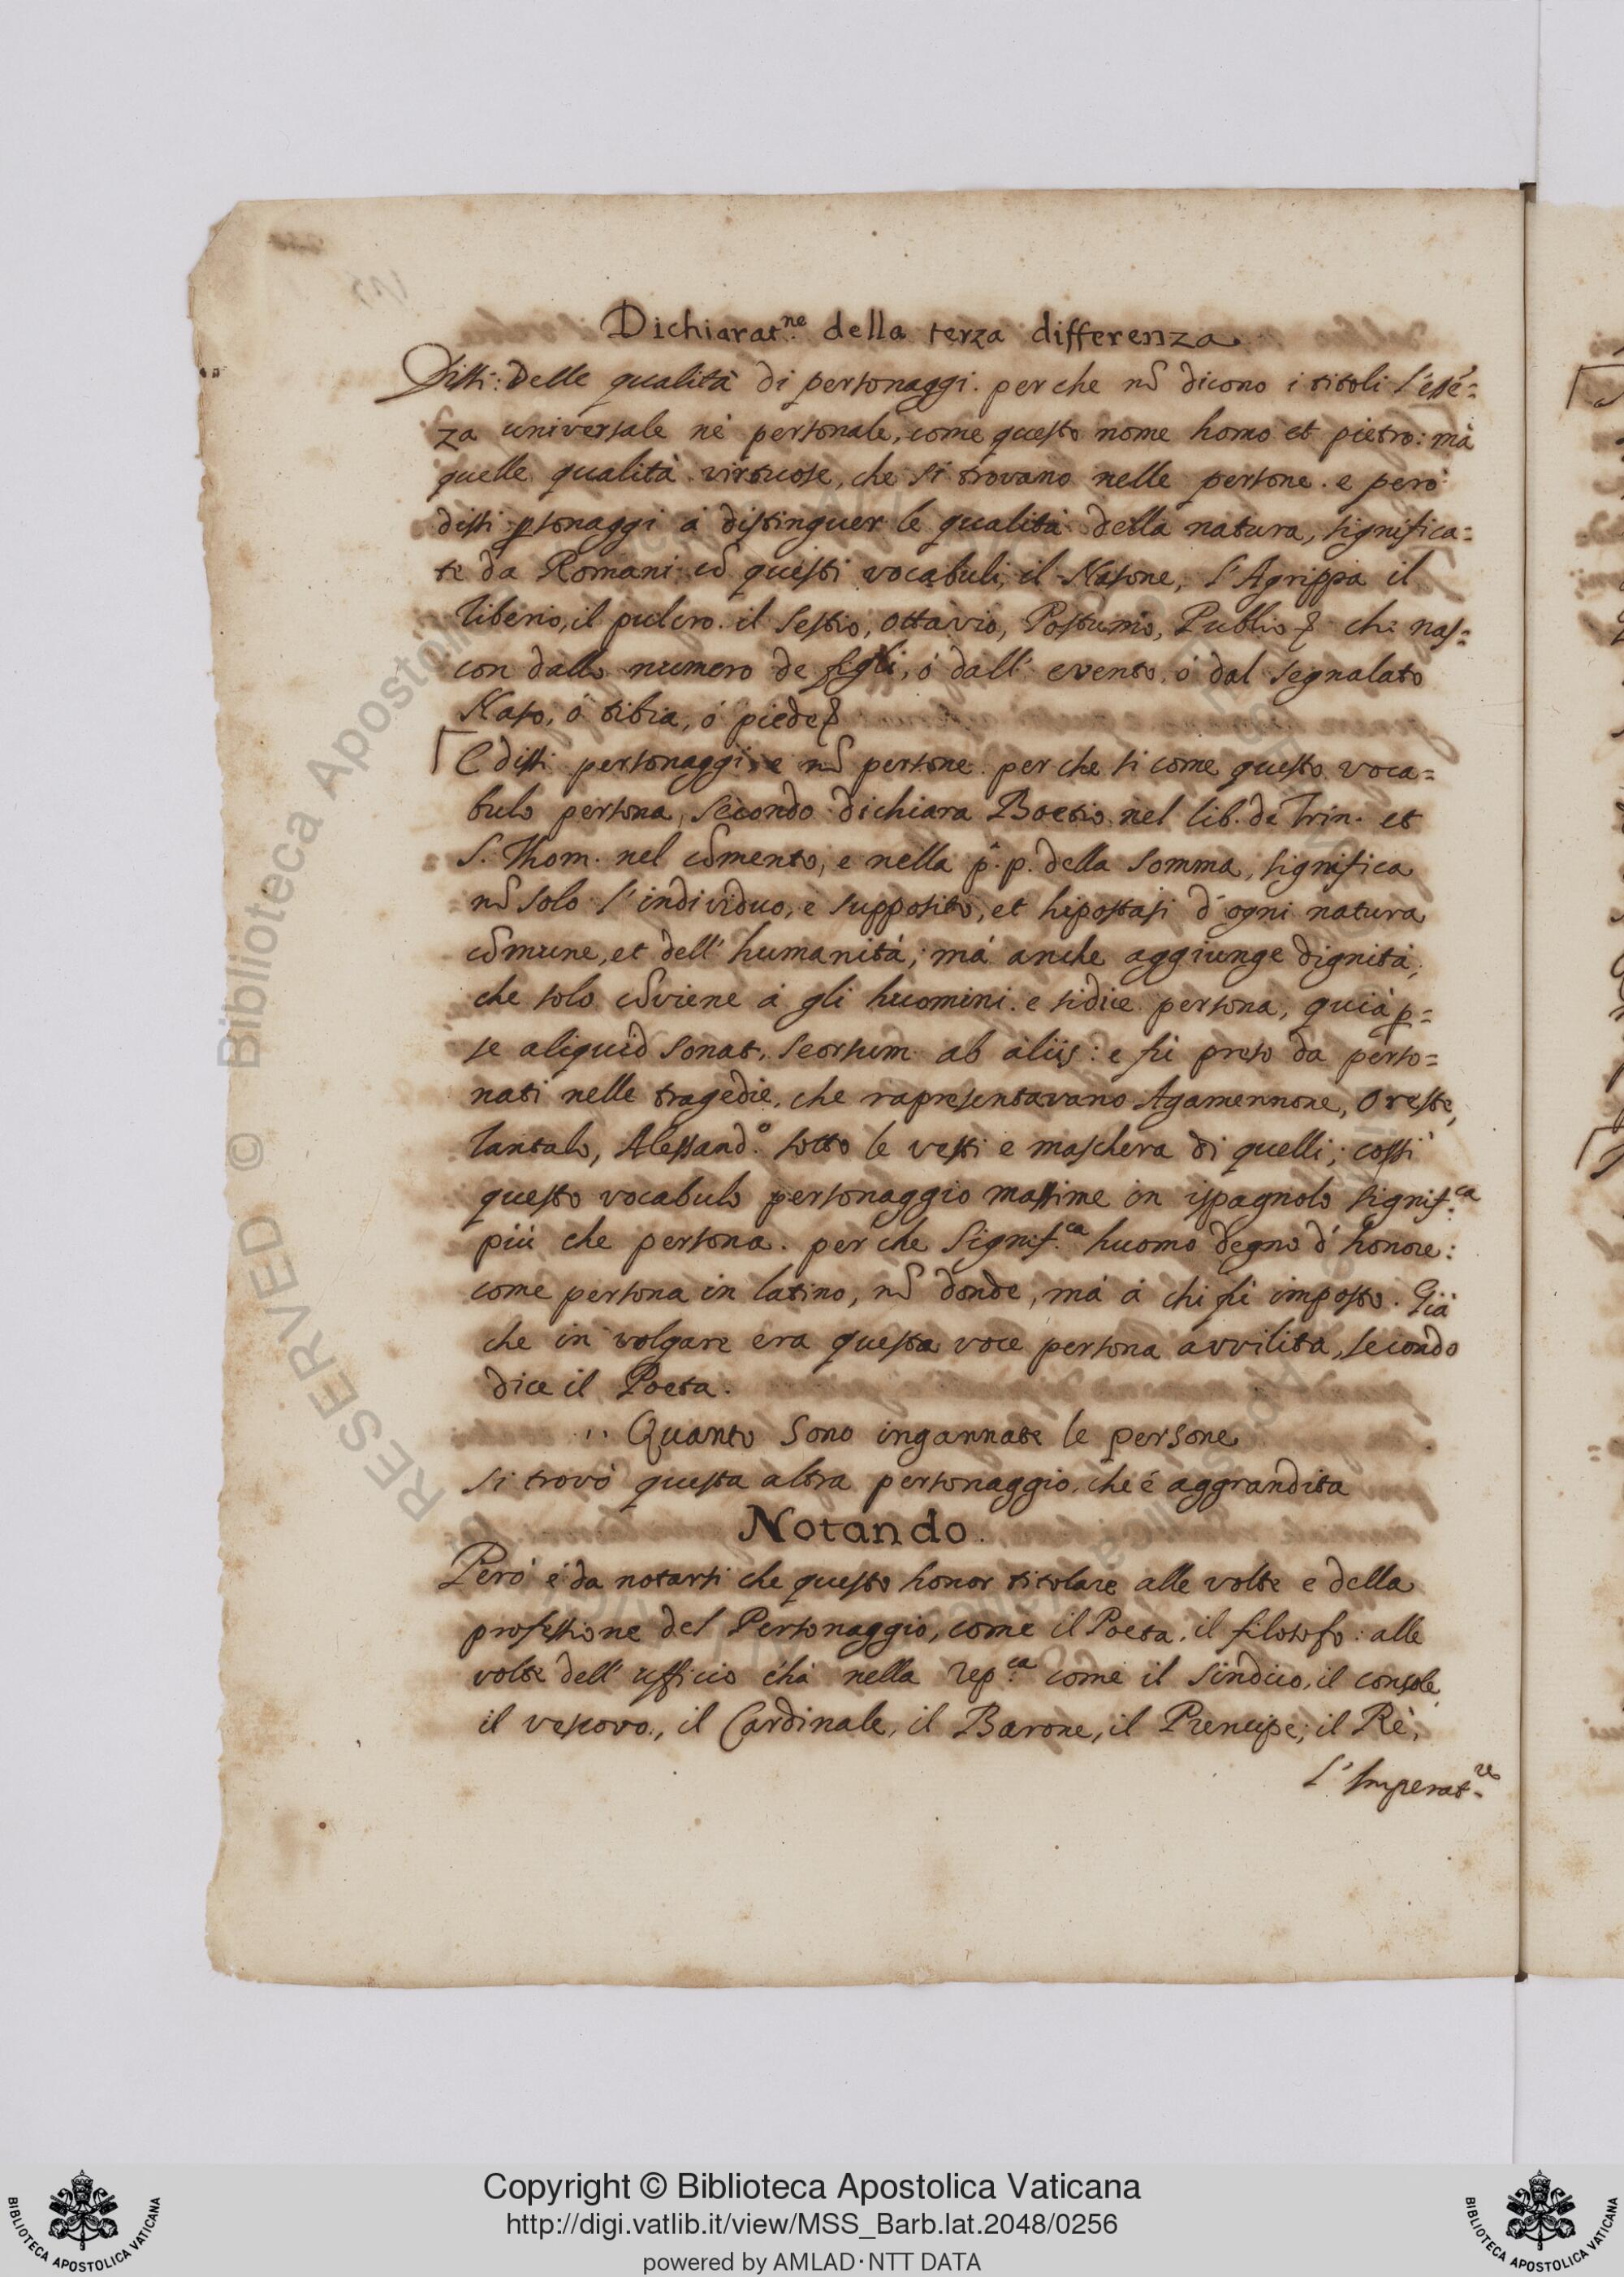 Dichiarat.ne della terza differenza
Dissi: Delle qualità di personaggi. perche nō dicono i titoli l'essē=
za universale nè personale, come questo nome homo et pietro: mà
quelle qualità virtuose, che si trovano nelle persone. e però
dissi ꝑsonaggi à distinguer le qualità della natura, significa=
te da Romani cō questi vocabuli, il Nasone, l'Agrippa il
Tiberio, il pulcro. il Sestio, Ottavio, Postumio, Publio & che nas=
con dallo numero de figli, ó dall' evento, ó dal segnalato
Naso, ó tibia, ó piede &
E dissi personaggi, e nō persone perche si come questo voca=
bulo persona, secondo dichiara Boetio nel lib. de Trin. et
S. Thom. nel cōmento, e nella pª. p. della somma, significa
nō solo l'individuo, e supposito, et hipostasi d'ogni natura
cōmune, et dell' humanità; mà anche aggiunge dignità,
che solo cōviene à gli huomini. e si dice persona, quia ꝑ=
se aliquid sonat, seorsum ab aliis: e fù preso da perso=
nati nelle tragedie, che rapresentavano Agamennone, Oreste,
Tantalo, Alessand.o sotto le vesti e maschera di quelli; cossì
questo vocabulo personaggio massime in ispagnolo signif.ca
più che persona. perche signif.ca huomo degno d'honore:
come persona in latino, nō donde, mà à chi fù imposto. Già
che in volgare era questa voce persona avvilita, secondo
dice il Poeta.
,, Quanto sono ingannate le persone
si trovò questa altra personaggio, che é aggrandita
Notando.
Però é da notarsi che questo honor titolare alle volte e della
professione del Personaggio, come il Poeta, il filosofo: alle
volte dell' ufficio c'hà nella rep.ca come il sindico, il console,
il vescovo, il Cardinale, il Barone, il Prencipe, il Rè,
l'Imperat.re
Copyright © Biblioteca Apostolica Vaticana
http://digi.vatlib.it/view/MSS_Barb.lat.2048/0256
powered by AMLAD·NTT DATA
BIBLIOTECA APOSTOLICA VATICANA
BIBLIOTECA APOSTOLICA VATICANA